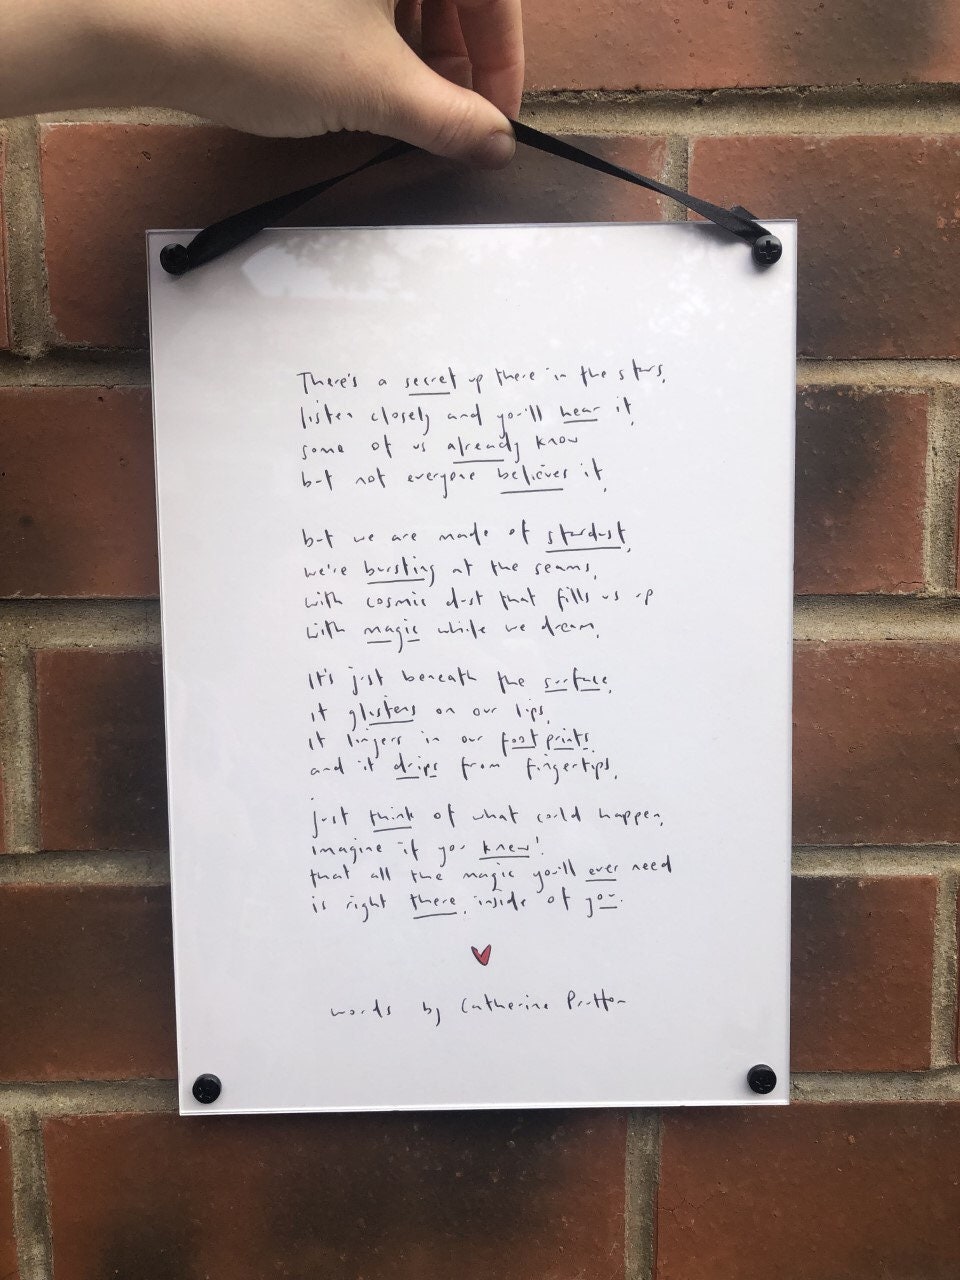 There's a secret up there in the stars,
listen closely and you'll hear it,
some of us already know
but not everyone believes it,
but we are made of stardust,
we're bursting at the seams,
with cosmic dust that fills us up
with magic while we dream,
it's just beneath the surface,
it glistens on our lips,
it lingers in our footprints,
and it drips from fingertips,
just think of what could happen,
imagine if you knew!
that all the magic you'll ever need
is right there, inside of you.
words by Catherine Prutton